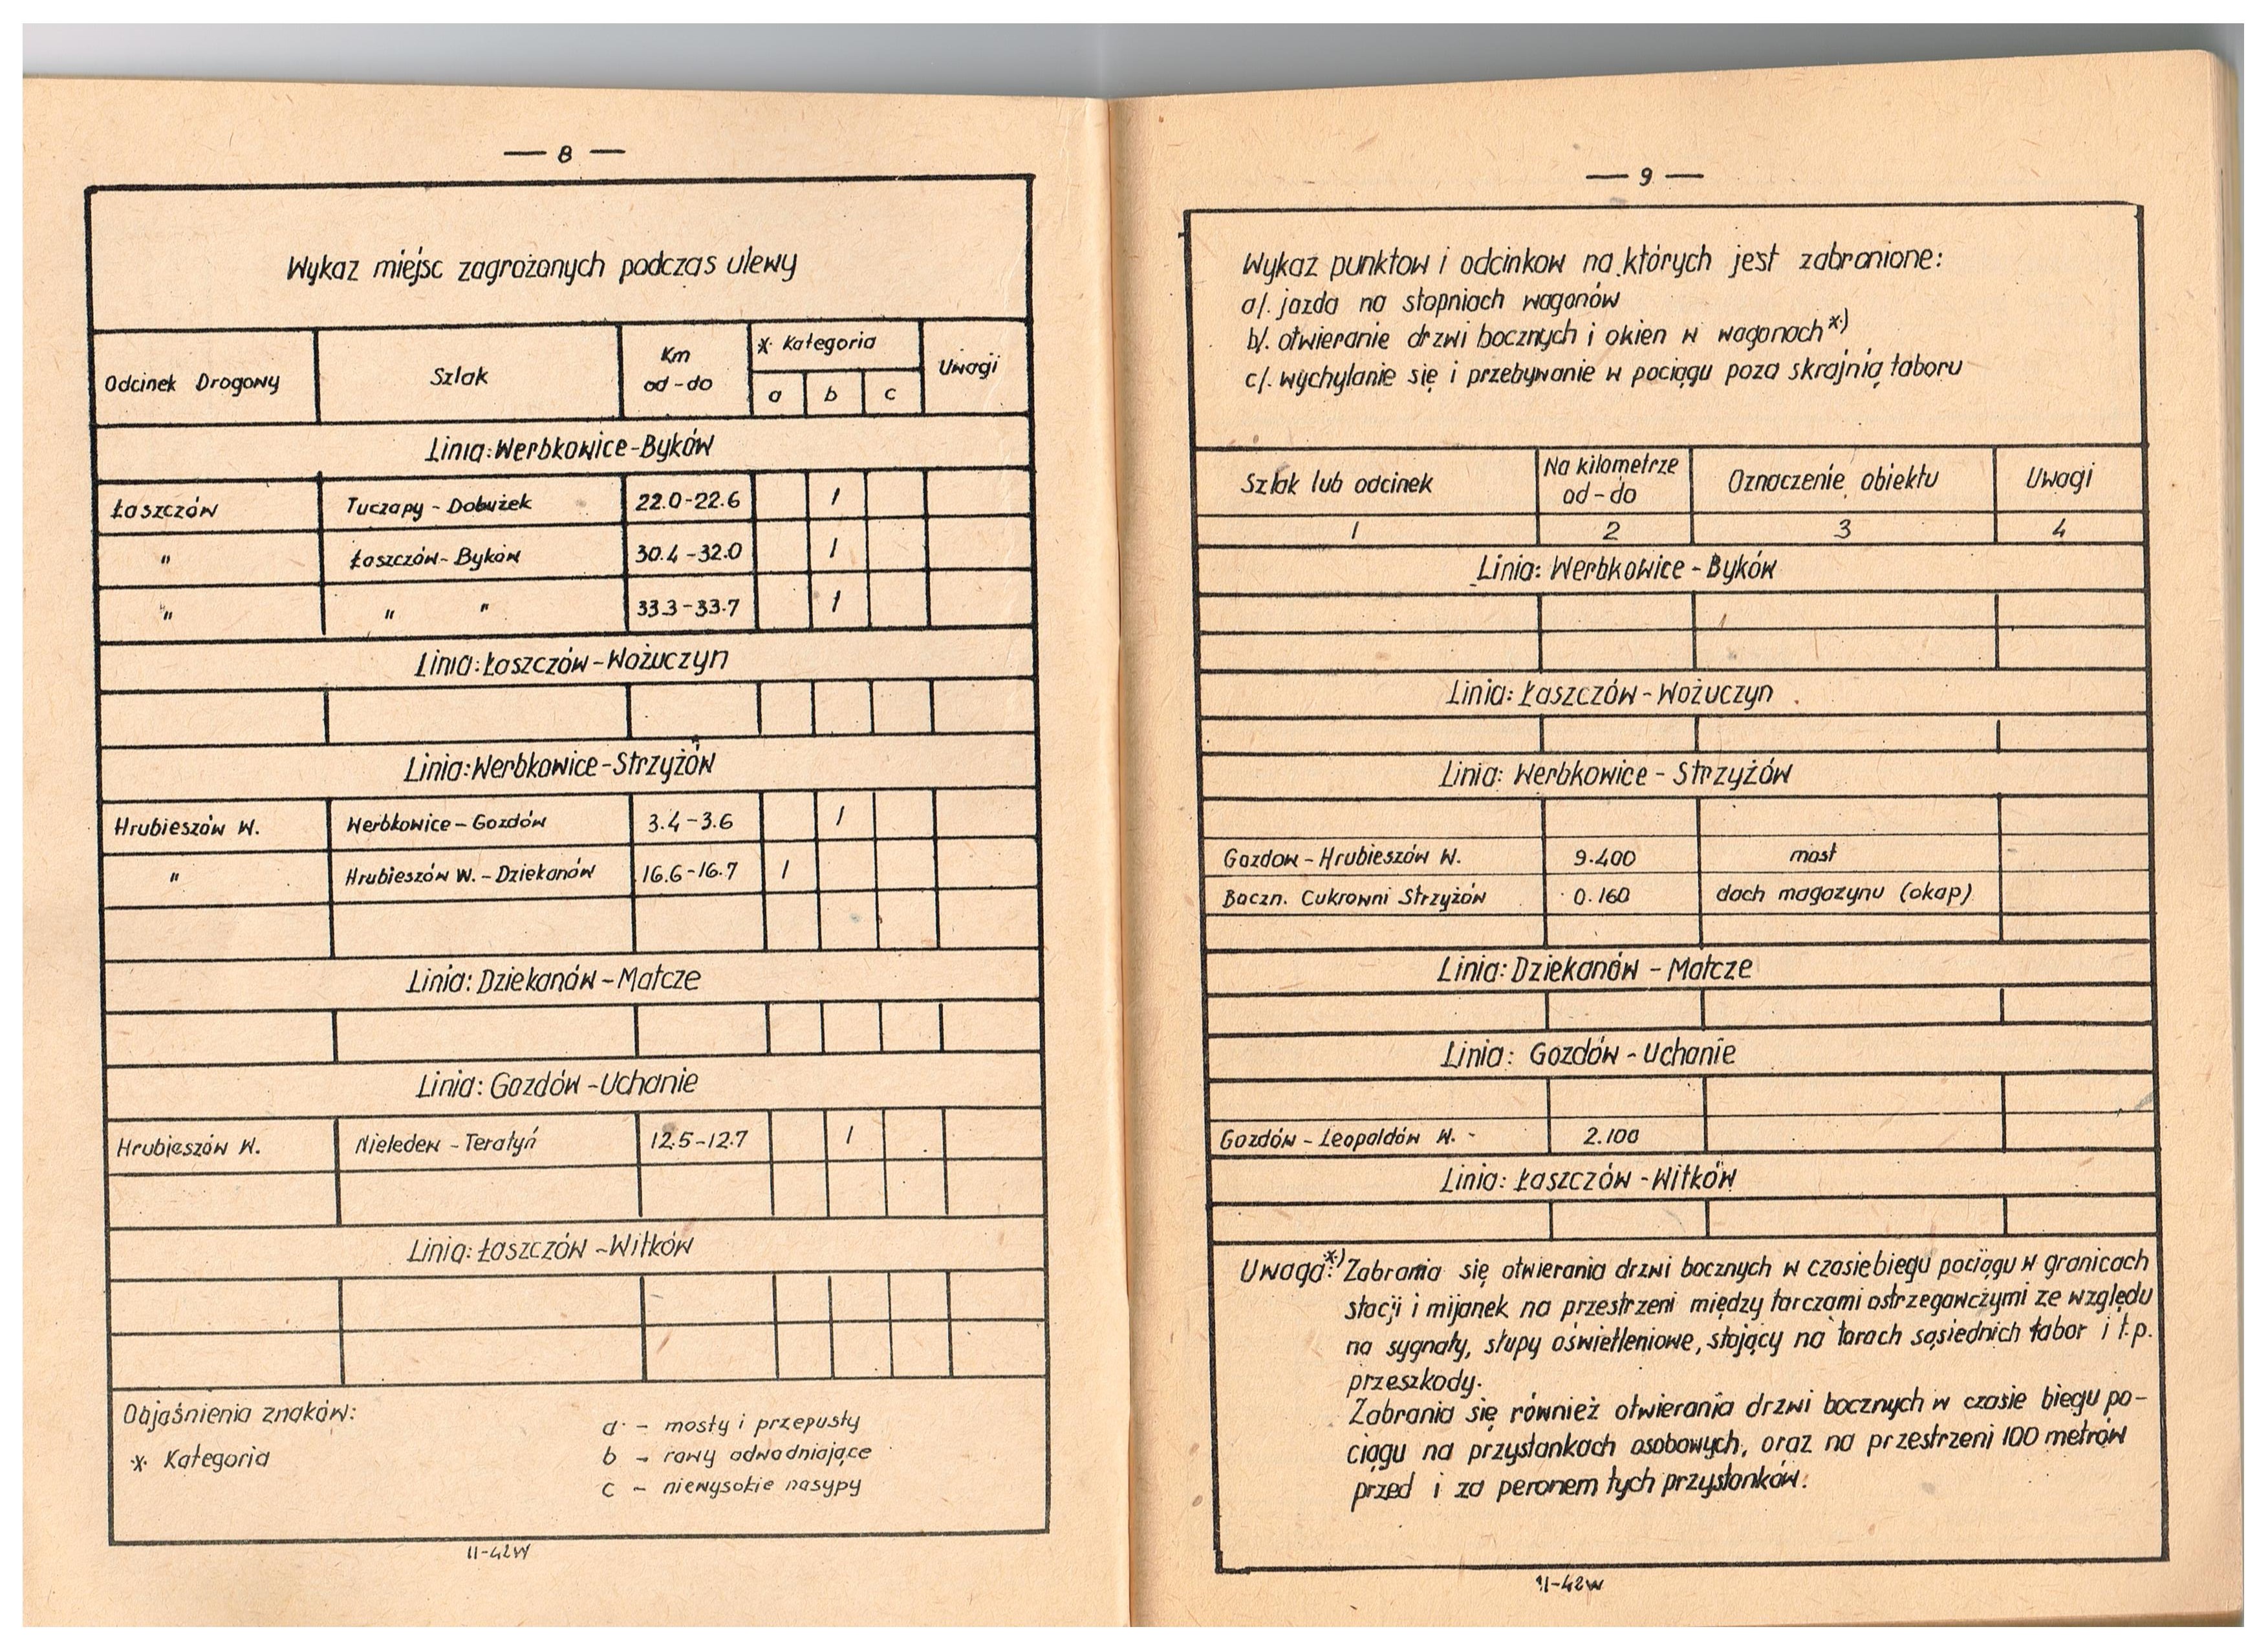 — 8 —
Wykaz miejsc zagrożonych podczas ulewy
Odcinek Drogowy Szlak Km od-do x Kategoria a b c Uwagi
Linia: Werbkowice-Byków
Łaszczów Tuczapy - Dobużek 22.0-22.6 1
" Łaszczów - Byków 30.4-32.0 1
" " " 33.3-33.7 1
Linia: Łaszczów-Wożuczyn
Linia: Werbkowice-Strzyżów
Hrubieszów W. Werbkowice - Gozdów 3.4-3.6 1
" Hrubieszów W. - Dziekanów 16.6-16.7 1
Linia: Dziekanów-Matcze
Linia: Gozdów-Uchanie
Hrubieszów W. Nieledew - Teratyń 12.5-12.7 1
Linia: Łaszczów-Witków
Objaśnienia znaków:
x Kategoria
a - mosty i przepusty
b - rowy odwadniające
c - niewysokie nasypy
11-42W
— 9 —
Wykaz punktow i odcinkow na których jest zabronione:
a/. jazda na stopniach wagonów
b/. otwieranie drzwi bocznych i okien w wagonach x)
c/. wychylanie się i przebywanie w pociągu poza skrajnią taboru
Szlak lub odcinek Na kilometrze od-do Oznaczenie obiektu Uwagi
1 2 3 4
Linia: Werbkowice - Byków
Linia: Łaszczów - Wożuczyn
Linia: Werbkowice - Strzyżów
Gozdow - Hrubieszów W. 9.400 most
Boczn. Cukrowni Strzyżów 0.160 dach magazynu (okap)
Linia: Dziekanów - Matcze
Linia: Gozdów - Uchanie
Gozdów - Leopoldów W. - 2.100
Linia: Łaszczów - Witków
Uwaga: x) Zabrania się otwierania drzwi bocznych w czasie biegu pociągu w granicach
stacji i mijanek na przestrzeni między tarczami ostrzegawczymi ze względu
na sygnały, słupy oświetleniowe, stojący na torach sąsiednich tabor i t.p.
przeszkody.
Zabrania się również otwierania drzwi bocznych w czasie biegu po-
ciągu na przystankach osobowych, oraz na przestrzeni 100 metrów
przed i za peronem tych przystanków.
11-42W